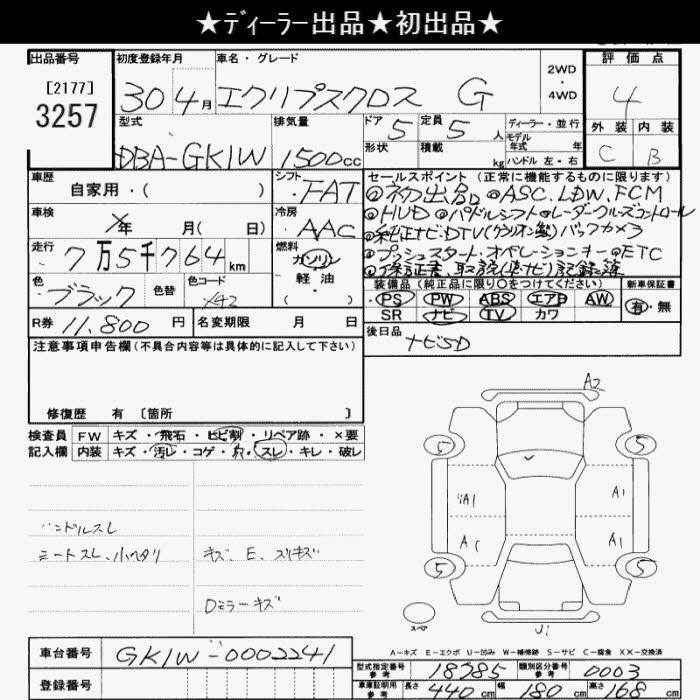 ★ディーラー出品★初出品★
出品番号
[2177]
3257
初度登録年月
30 4月
車名・グレード
エクリプスクロス G
2WD
・
4WD
評価点
4
外装 内装
C B
型式
DBA-GK1W
排気量
1500cc
ドア 5
定員 5人
形状
積載 kg
ディーラー・並行
モデル
年式 年
ハンドル 左・右
車歴
自家用・( )
シフト
FAT
車検
年 月( 日)
冷房
AAC
走行
7万5千764km
燃料
ガソリン
軽油
( )
色
ブラック
色替
色コード
X42
R券 11,800 円
名変期限 月 日
セールスポイント (正常に機能するものに限ります)
◎初出品 ◎ASC.LDW.FCM
◎HUD ◎パドルシフト ◎レーダークルーズコントロール
◎純正ナビ・DTV(ケンウッド製)バックカメラ
◎プッシュスタート・オペレーションキー ◎ETC
◎保証書、取説(車ナビ)記録簿
装備品 (純正品に限り〇をつけてください)
PS PW ABS エアB AW
SR ナビ TV カワ
新車保証書
有・無
後日品
ナビSD
注意事項申告欄 (不具合内容等は具体的に記入して下さい)
修復歴 有 [箇所 ]
検査員
記入欄
FW キズ・飛石・ヒビ割・リペア跡・×要
内装 キズ・汚レ・コゲ・穴・スレ・キレ・破レ
ハンドルスレ
シートスレ、小ヘタリ
キズ、E、スリキズ
Dミラーキズ
A2
5 5
A1 A1
A1
5 5
スペア
U1
A－キズ E－エクボ U－凹み W－補修跡 S－サビ C－腐食 XX－交換済
車台番号 GK1W-0002241
登録番号
型式指定番号
参考
18785
類別区分番号
参考
0003
車庫証明用
参考
長さ 440cm 幅 180cm 高さ 168cm